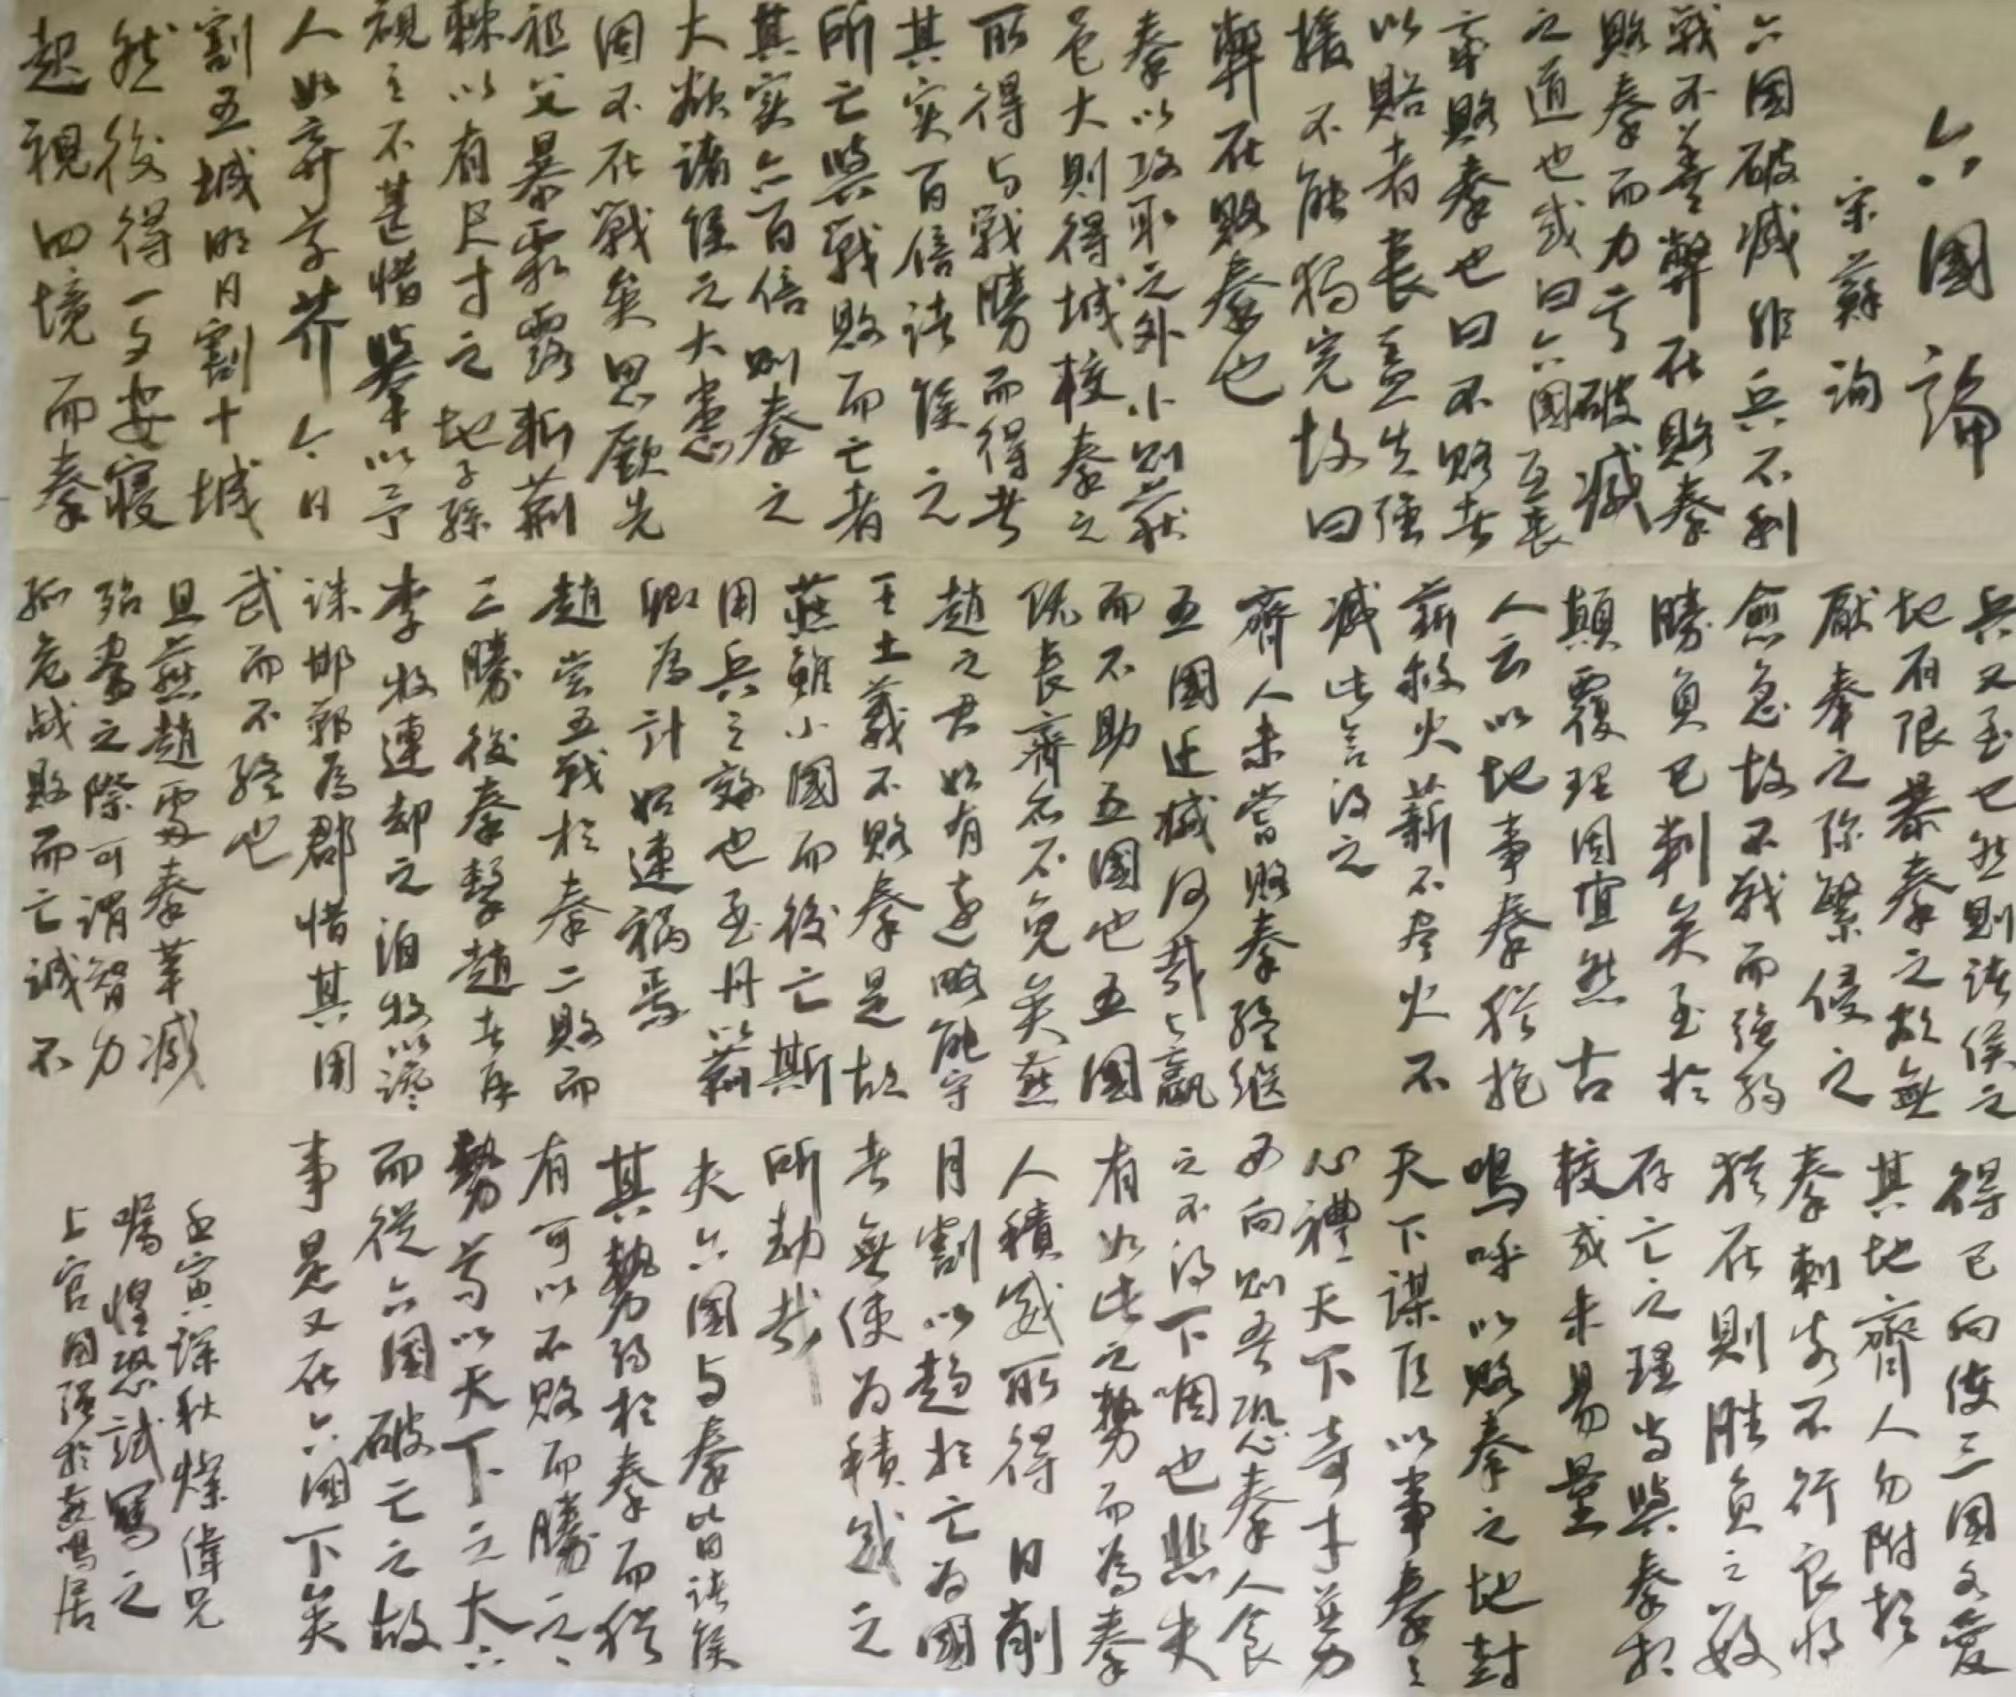 六國論
宋蘇詢
六國破滅非兵不利
戰不善弊在賂秦
賂秦而力亏破滅
之道也或曰六國互喪
率賂秦也曰不賂者
以賂者喪盖失強
援不能獨完故曰
弊在賂秦也
秦以攻取之外小則获
邑大則得城校秦之
所得与戰勝而得者
其实百倍诸侯之
所亡與戰敗而亡者
其实亦百倍则秦之
大欲諸侯之大患
固不在戰矣思厥先
祖父暴霜露斬荊
棘以有尺寸之地子孫
視之不甚惜舉以予
人如弃草芥今日
割五城明日割十城
然後得一夕安寢
起視四境而秦
兵又至也然則诸侯之
地有限暴秦之欲無
厭奉之弥繁侵之
愈急故不戰而强弱
勝負已判矣至於
顛覆理固宜然古
人云以地事秦猶抱
薪救火薪不尽火不
滅此言得之
齊人未嘗賂秦終继
五國迁滅何哉与嬴
而不助五國也五國
既喪齊亦不免矣燕
趙之君始有遠略能守
其土義不賂秦是故
燕雖小國而後亡斯
用兵之效也至丹以荊
卿為計始速禍焉
趙尝五戰於秦二敗而
三勝後秦擊趙者再
李牧連却之洎牧以讒
誅邯鄲為郡惜其用
武而不終也
且燕趙處秦革滅
殆盡之際可謂智力
孤危战敗而亡誠不
得已向使三国各爱
其地齊人勿附於
秦刺客不行良将
猶在則胜负之数
存亡之理当與秦相
較或未易量
嗚呼以賂秦之地封
天下謀臣以事秦之
心禮天下奇才并力
西向则吾恐秦人食
之不得下咽也悲夫
有如此之勢而為秦
人積威所得日削
月割以趋於亡为國
者無使为積威之
所劫哉
夫六國与秦皆诸侯
其勢弱於秦而猶
有可以不賂而勝之之
勢苟以天下之大下
而從六國破亡之故
事是又在六國下矣
壬寅深秋燦偉兄
嘱惶恐試寫之
上官国强於燕鳴居